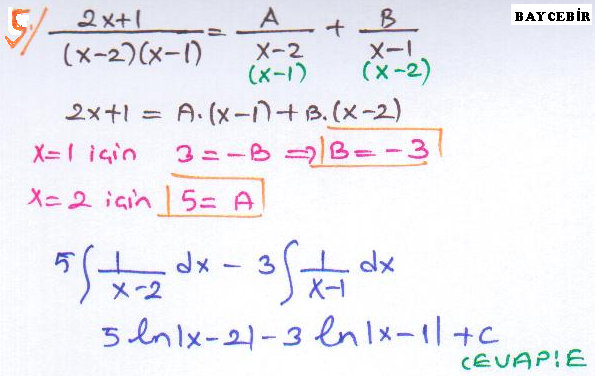 BAYCEBİR
5) (2x+1)/((x-2)(x-1)) = A/(x-2) + B/(x-1)
(x-1) (x-2)
2x+1 = A.(x-1)+B.(x-2)
x=1 için 3=-B ⇒ B=-3
x=2 için 5=A
5∫ 1/(x-2) dx - 3∫ 1/(x-1) dx
5 ln|x-2|-3 ln|x-1|+c
CEVAP:E